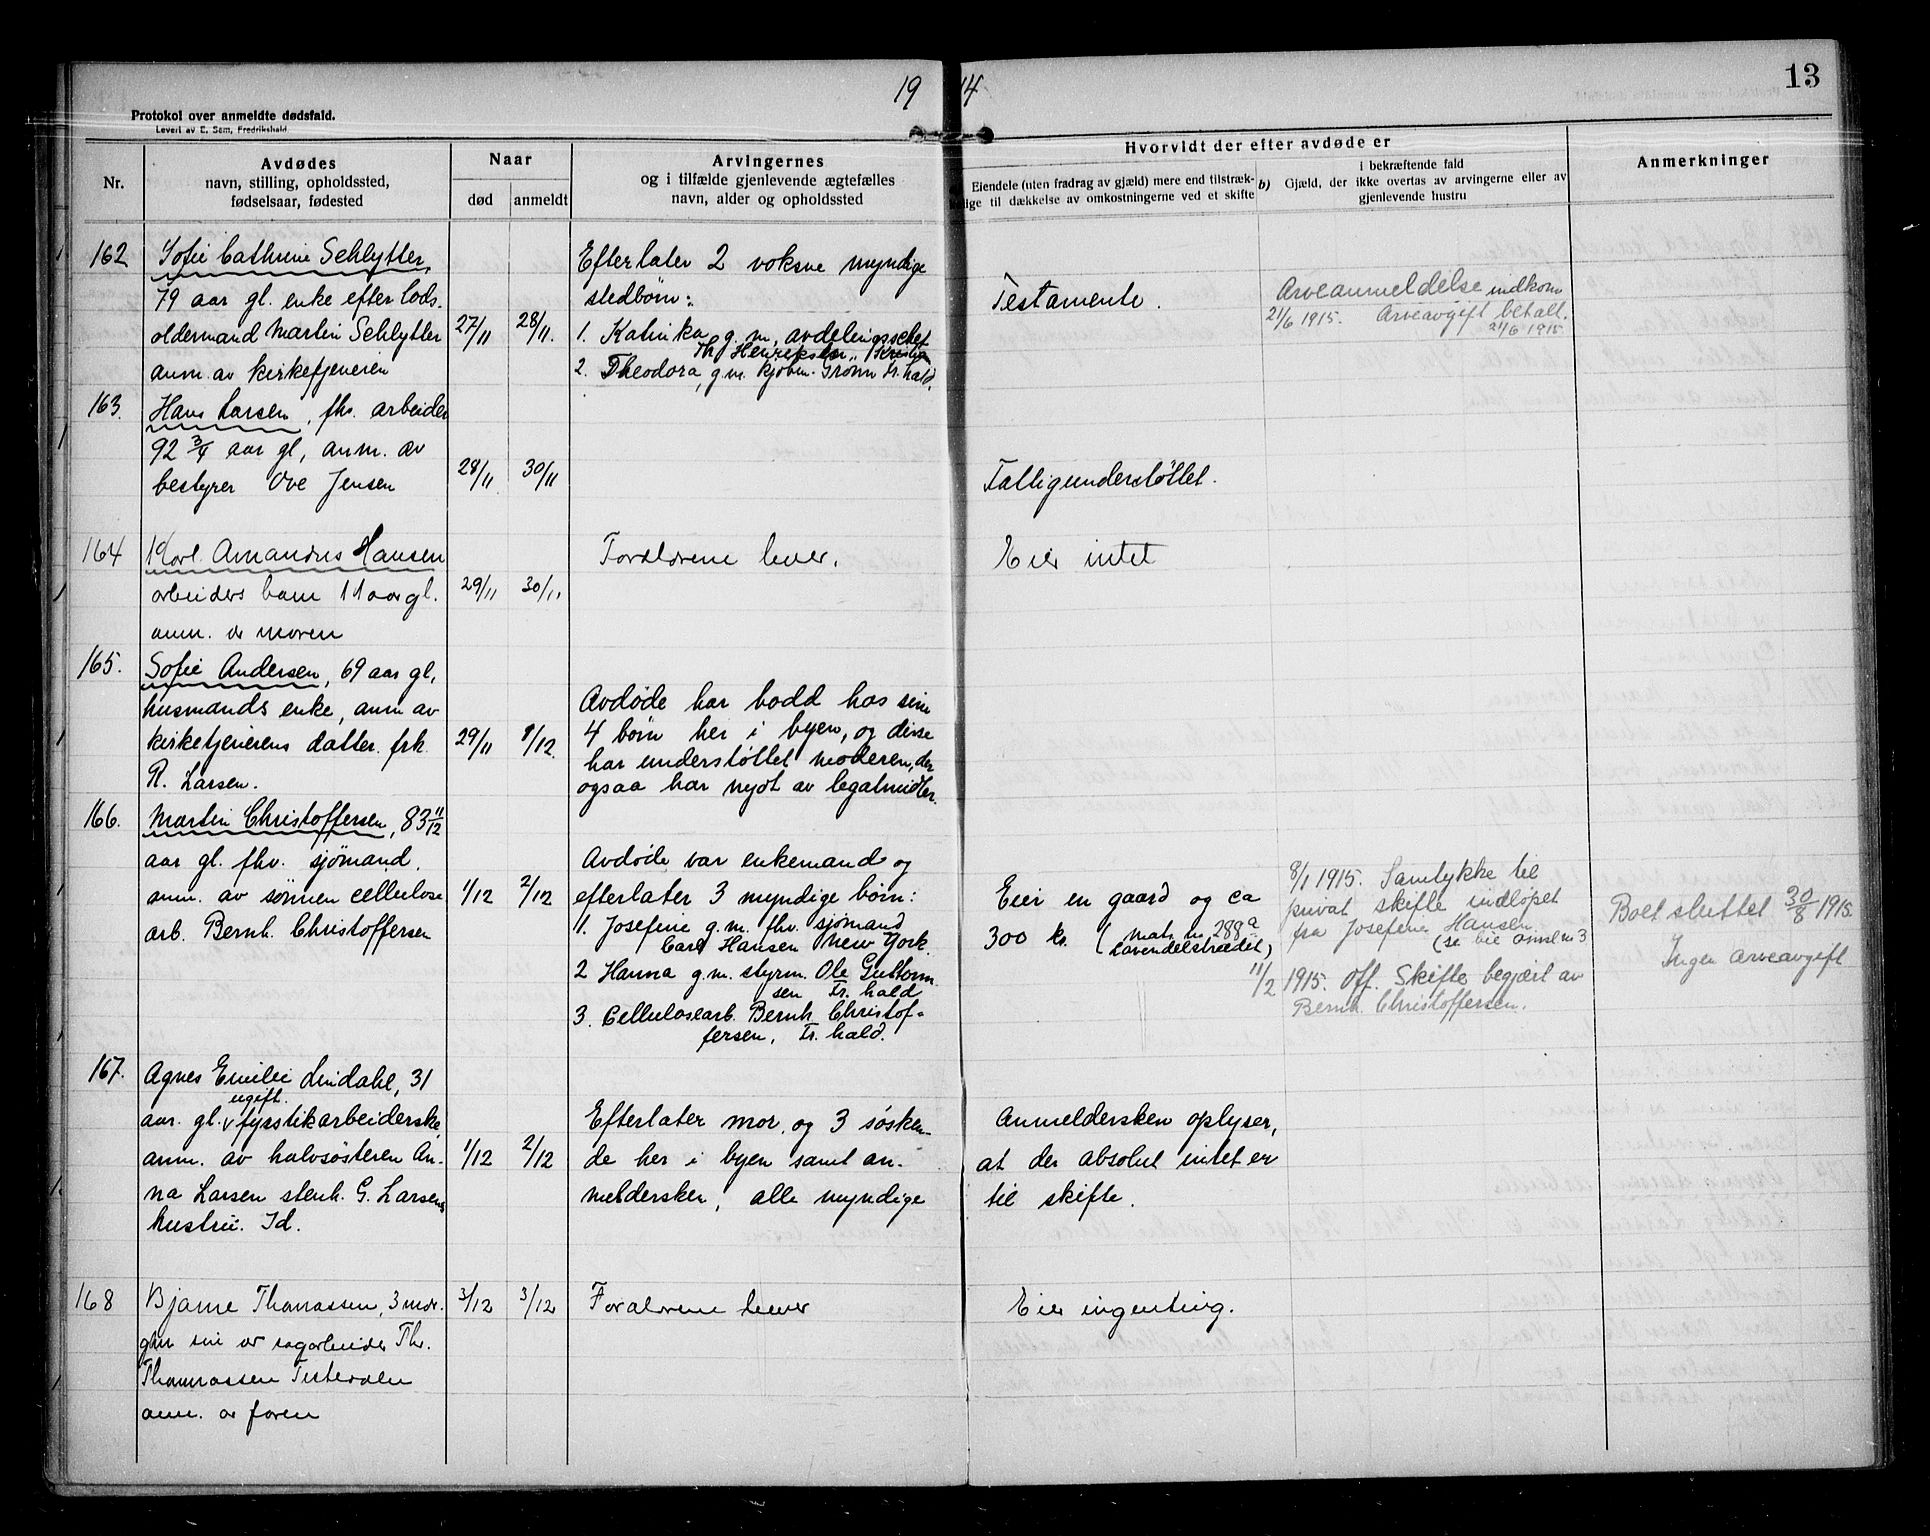 19 14
13
Protokol over anmeldte dødsfald.
Levert av E. Sem, Fredrikshald
Nr.
Avdødes
navn, stilling, opholdssted,
fødselsaar, fødested
Naar
død
anmeldt
Arvingernes
og i tilfælde gjenlevende ægtefælles
navn, alder og opholdssted
Hvorvidt der efter avdøde er
Eiendele (uten fradrag av gjæld) mere end tilstræk-
lige til dækkelse av omkostningerne ved et skifte
i bekræftende fald
b) Gjæld, der ikke overtas av arvingerne eller av
gjenlevende hustru
Anmerkninger
162
Sofie Cathrine Schlytter,
79 aar gl. enke efter lods-
oldermand Martin Schlytter
anm. av kirketjeneren
27/11
28/11.
Efterlater 2 voksne myndige
stedbørn:
1. Katinka g. m. avdelingschef
Th. Henriksen, Kristia
2. Theodora, g.m. kjøbm. Grønn Fr.hald.
Testamente.
Arveanmeldelse indkom
21/6 1915. Arveavgift betalt.
21/6 1915
163.
Hans Larsen, fhv. arbeider
92 3/4 aar gl, anm. av
bestyrer Ove Jensen
28/11
30/11
Fattigunderstøttet.
164
Karl Amandus Hansen
arbeiders barn 11 aar gl.
anm. av moren
29/11
30/11
Forældrene lever.
Eier intet
165.
Sofie Andersen, 69 aar gl,
husmands enke, anm av
kirketjenerens datter frk.
R. Larsen.
29/11
1/12.
Avdøde har bodd hos sine
4 børn her i byen, og disse
har understøttet moderen, der
ogsaa har nydt av legatmidler.
166.
Martin Christoffersen, 83 11/12
aar gl. fhv. sjømand.
anm. av sønnen cellulose
arb. Bernh. Christoffersen
1/12
2/12
Avdøde var enkemand og
efterlater 3 myndige børn:
1. Josefine g.m. fhv. sjømand
Carl Hansen New York
2 Hanna g.m. styrm. Ole Guttorm
sen Fr. hald
3. Cellulosearb. Bernh. Christof-
fersen, Fr. hald.
Eier en gaard og ca
300 kr. (Mat. nr 288a
Lavendelstrædet)
8/1 1915. Samtykke til
privat skifte indløpet
fra Josefine Hansen
11/2 1915. Off. Skifte begjært av
Bernh. Christoffersen.
Boet sluttet 30/8 1915
Ingen arveavgift
167.
Agnes Emilie Lindahl, 31
ugift.
aar. gl. v fyrstikarbeiderske,
anm. av halvsøsteren An-
na Larsen stenh. G. Larsens
hustru. Id.
1/12
2/12
Efterlater mor, og 3 søsken-
de her i byen samt an-
meldersken, alle myndige
Anmeldersken oplyser,
at der absolut intet er
til skifte.
168
Bjarne Thomassen, 3 mdr.
gln søn av sagarbeider Th.
Thomassen Tistedalen
anm. av faren
3/12
3/12
Forældrene lever
Eier ingenting.